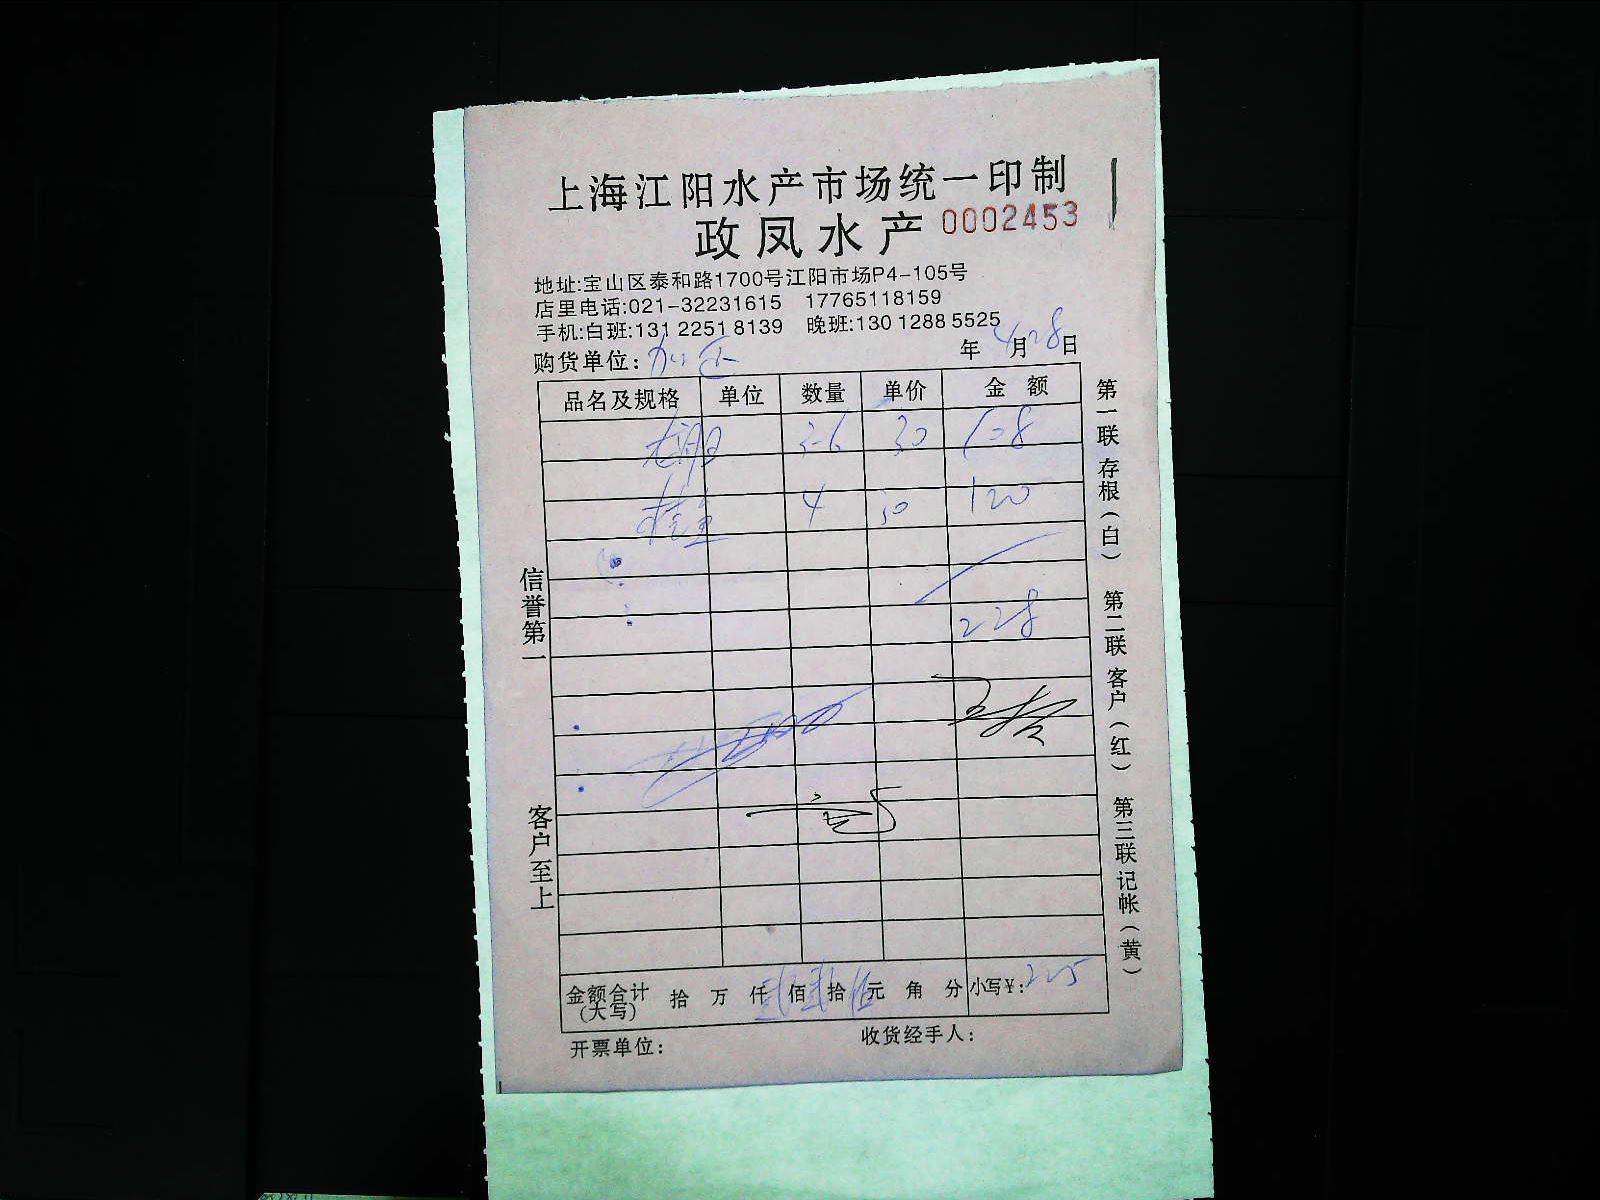 上海江阳水产市场统一印制
政凤水产 0002453
地址:宝山区泰和路1700号江阳市场P4-105号
店里电话:021-32231615 17765118159
手机:白班:131 2251 8139 晚班:130 1288 5525
购货单位: 年 4月28日
品名及规格 单位 数量 单价 金额
3-6 30 108
4 30 120
228
金额合计(大写) 拾 万 仟 贰佰贰拾伍元 角 分 小写¥:225
开票单位: 收货经手人:
信誉第一
客户至上
第一联 存根(白) 第二联 客户(红) 第三联 记帐(黄)